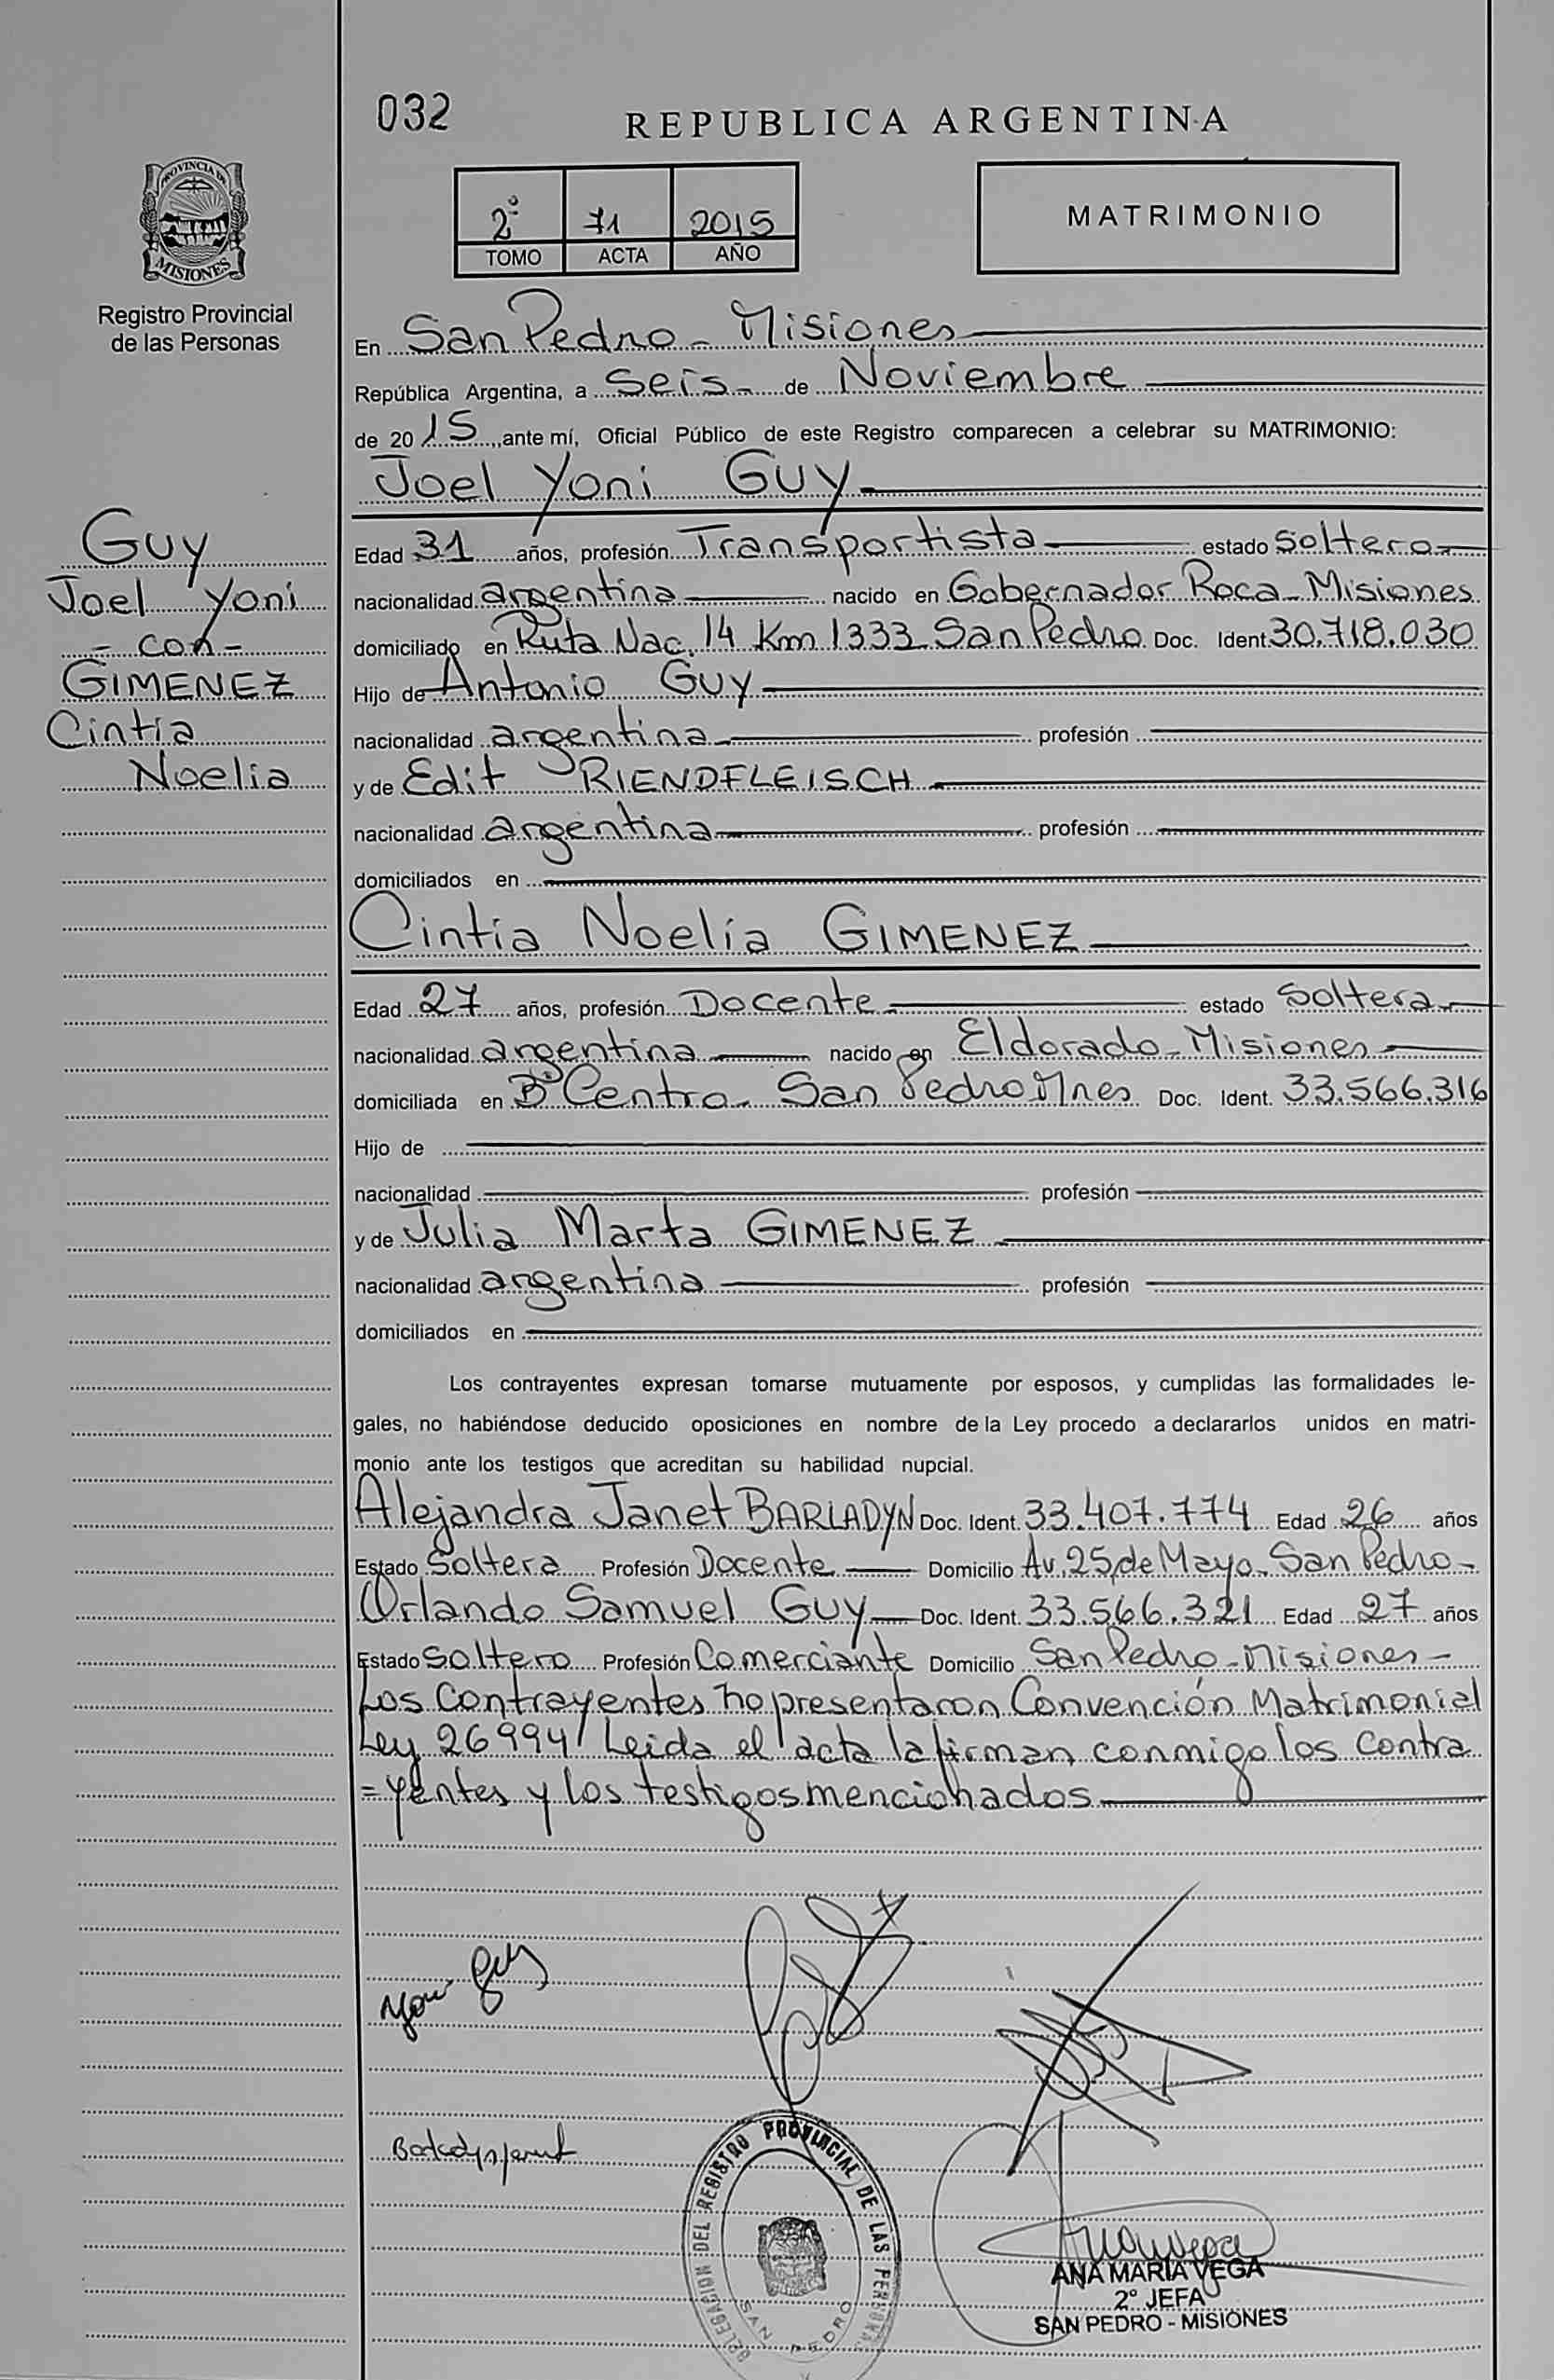 032
REPUBLICA ARGENTINA
PROVINCIA DE
MISIONES
Registro Provincial
de las Personas
2º 71 2015
TOMO ACTA AÑO
MATRIMONIO
Guy
Joel Yoni
- con -
GIMENEZ
Cintia
Noelia
En San Pedro - Misiones
República Argentina, a Seis - de Noviembre
de 2015, ante mí, Oficial Público de este Registro comparecen a celebrar su MATRIMONIO:
Joel Yoni GUY
Edad 31 años, profesión Transportista estado Soltero
nacionalidad argentina nacido en Gobernador Roca - Misiones
domiciliado en Ruta Nac. 14 Km 1333 San Pedro Doc. Ident. 30.718.030
Hijo de Antonio GUY
nacionalidad argentina profesión
y de Edit RIENDFLEISCH
nacionalidad argentina profesión
domiciliados en
Cintia Noelia GIMENEZ
Edad 27 años, profesión Docente estado Soltera
nacionalidad argentina nacido en Eldorado - Misiones
domiciliada en Bº Centro - San Pedro Mnes Doc. Ident. 33.566.316
Hijo de
nacionalidad profesión
y de Julia Marta GIMENEZ
nacionalidad argentina profesión
domiciliados en
Los contrayentes expresan tomarse mutuamente por esposos, y cumplidas las formalidades le-
gales, no habiéndose deducido oposiciones en nombre de la Ley procedo a declararlos unidos en matri-
monio ante los testigos que acreditan su habilidad nupcial.
Alejandra Janet BARLADYN Doc. Ident. 33.407.774 Edad 26 años
Estado Soltera Profesión Docente Domicilio Av. 25 de Mayo - San Pedro -
Orlando Samuel GUY Doc. Ident. 33.566.321 Edad 27 años
Estado Soltero Profesión Comerciante Domicilio San Pedro - Misiones -
Los Contrayentes no presentaron Convención Matrimonial
Ley 26994/ Leida el acta la firman conmigo los Contra
=yentes y los testigos mencionados
DELEGACION DEL REGISTRO PROVINCIAL DE LAS PERSONAS
SAN PEDRO
ANA MARIA VEGA
2º JEFA
SAN PEDRO - MISIONES